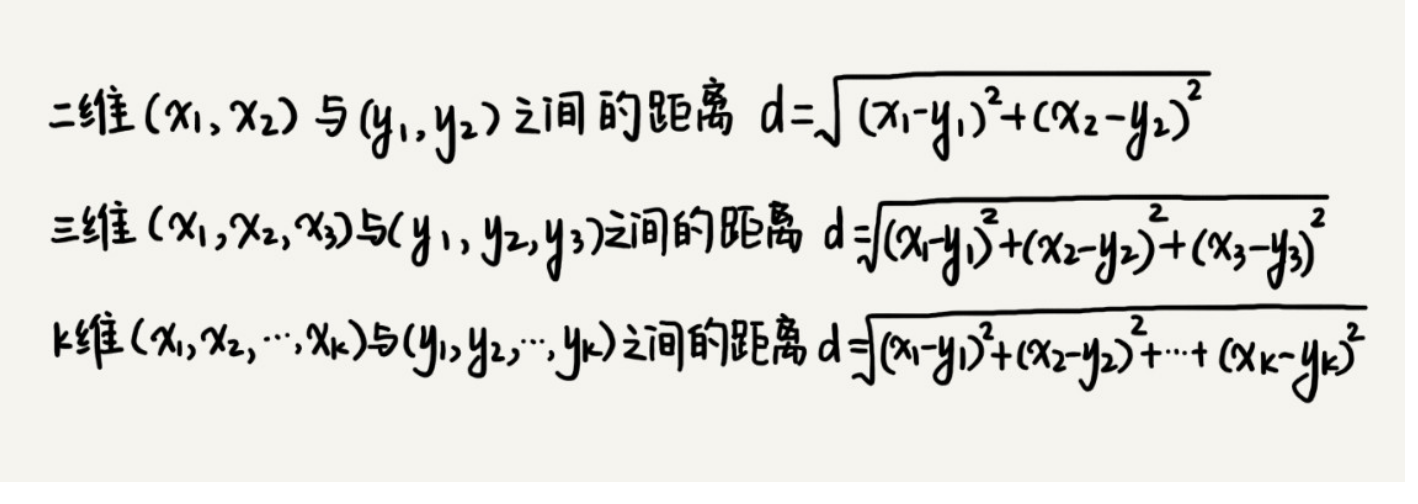 二维(x₁, x₂)与(y₁, y₂)之间的距离 d=√((x₁-y₁)²+(x₂-y₂)²)
三维(x₁,x₂,x₃)与(y₁, y₂,y₃)之间的距离 d=√((x₁-y₁)²+(x₂-y₂)²+(x₃-y₃)²)
k维(x₁,x₂,…,xₖ)与(y₁,y₂,…,yₖ)之间的距离 d=√((x₁-y₁)²+(x₂-y₂)²+…+(xₖ-yₖ)²)